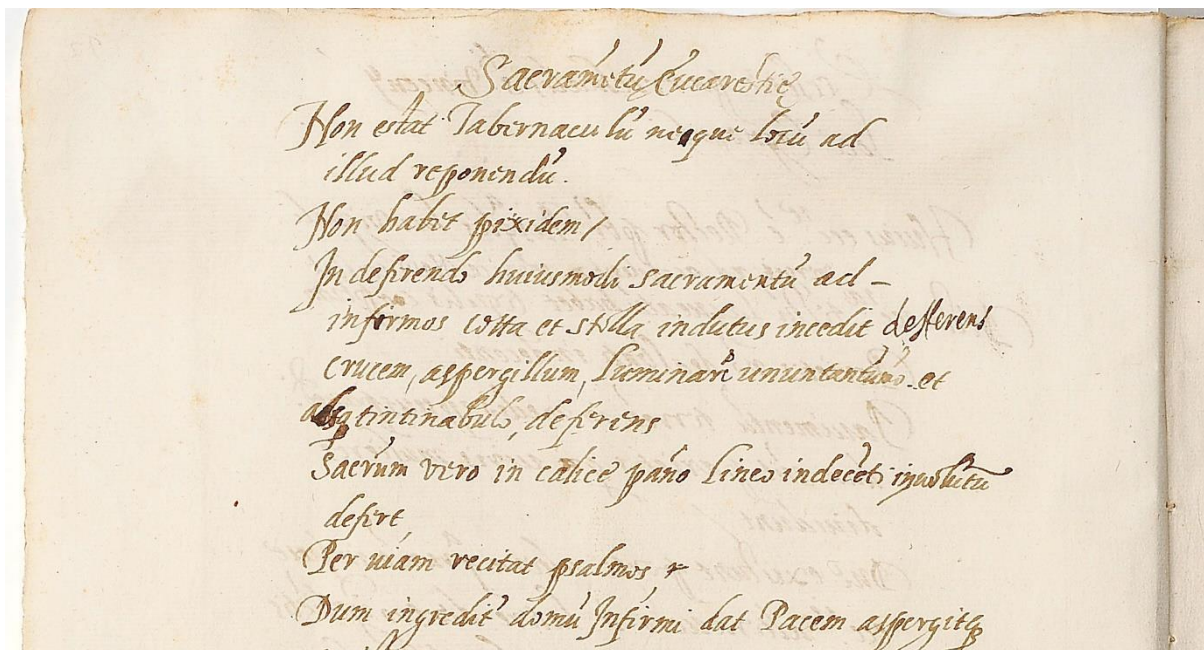 Sacramẽtũ Eucarestię
Non estat Tabernaculũ neque locũ ad
illud reponendũ.
Non habet pixidem /
In deferendo huiusmodi sacramentũ ad –
infirmos cotta et stolla indutus incedit defferens
crucem, aspergillum, Luminare unum tantum et
absq tintinabulo, deferens
Sacrum vero in calice pãno Lineo indecẽti involutũ
defert
Per uiam recitat psalmos
Dum ingredit' domũ Infirmi dat Pacem aspergitq